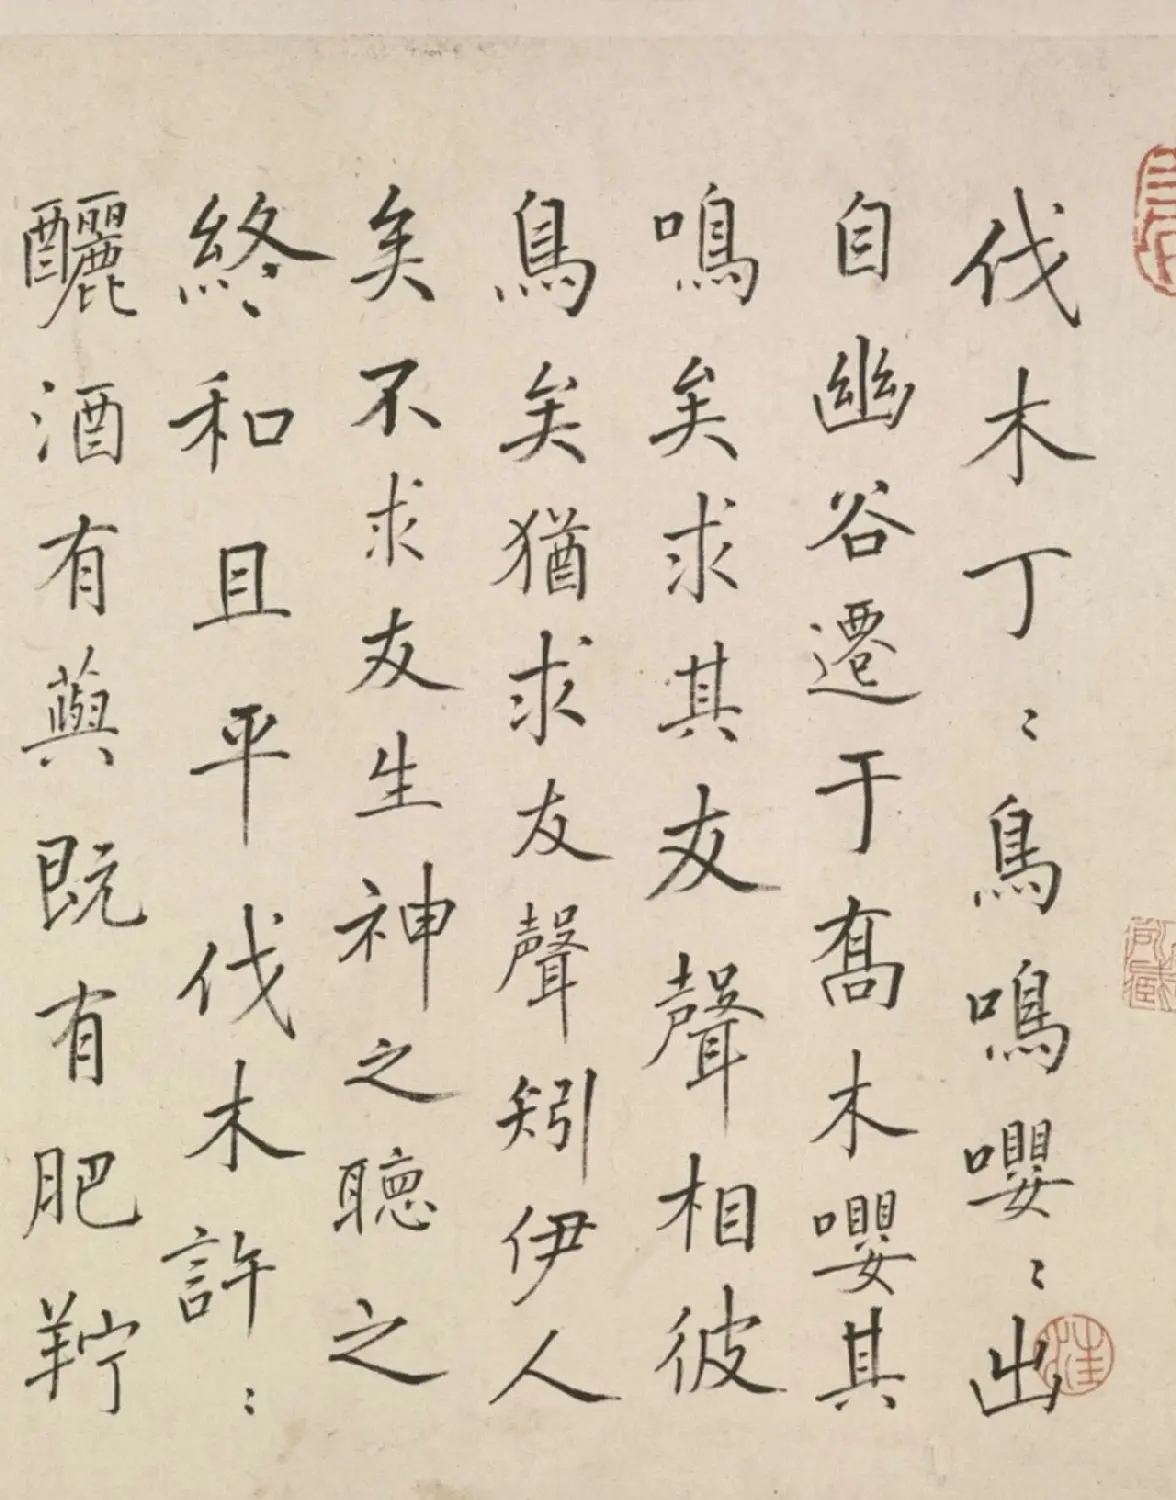 伐木丁〻鳥鳴嚶〻出
自幽谷遷于喬木嚶其
鳴矣求其友聲相彼
鳥矣猶求友聲矧伊人
矣不求友生神之聽之
終和且平伐木許〻
釃酒有藇既有肥羜